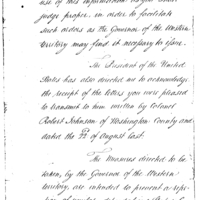 use of this information as you shall
judge proper. in order to facilitate
such orders as the Governor of the Western
territory may find it necessary to issue.
The President of the United
States has also directed me to acknowledge
the receipt of the letter you were pleased
to transmit to him written by Colonel
Robert Johnson of Washington County and
dated the 22d of August last.
The measures directed to be
taken, by the Governor of the Western
territory, are intended to prevent a repe-